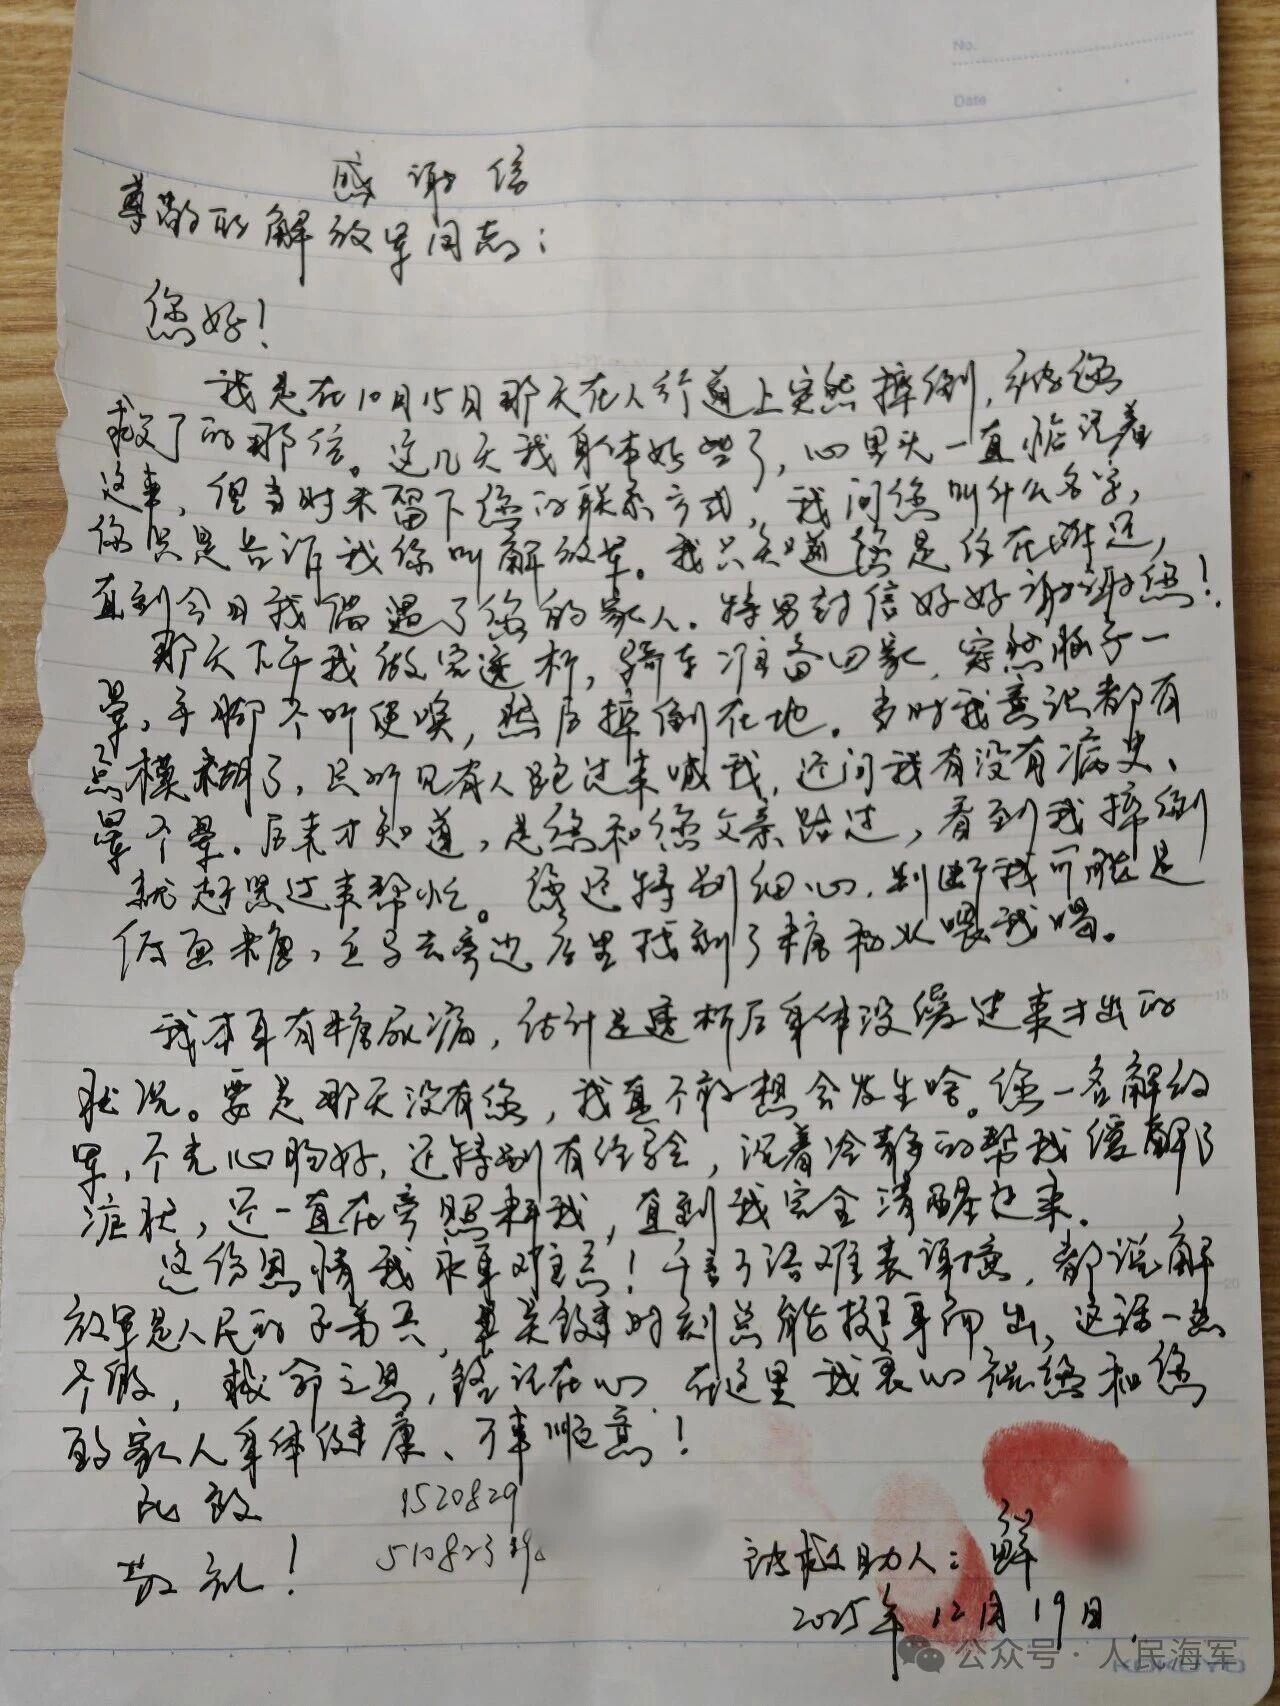 No.
Date
感谢信
尊敬的解放军同志：
您好！
我是在10月15日那天在人行道上突然摔倒，被您
救了的那位。这几天我身体好些了，心里头一直惦记着
这事，但当时未留下您的联系方式，我问您叫什么名字，
你只是告诉我你叫解放军。我只知道您是住在附近，
直到今日我偶遇了您的家人。特写封信好好谢谢您！
那天下午我做完透析，骑车准备回家，突然脑子一
晕，手脚不听使唤，然后摔倒在地。当时我意识都有
点模糊了，只听见有人跑过来喊我，还问我有没有病史、
晕不晕。后来才知道，是您和您父亲路过，看到我摔倒
就赶紧过来帮忙。您还特别细心，判断我可能是
低血糖，立马去旁边店里找到了糖和水喂我喝。
我本身有糖尿病，估计是透析后身体没缓过来才出的
状况。要是那天没有您，我真不敢想会发生啥。您一名解放
军，不光心肠好，还特别有经验，沉着冷静的帮我缓解了
症状，还一直在旁照料我，直到我完全清醒过来。
这份恩情我永远难忘！千言万语难表谢意，都说解
放军是人民的子弟兵，在关键时刻总能挺身而出，这话一点
不假，救命之恩，铭记在心 在这里我衷心祝您和您
的家人身体健康、万事顺意！
此致 1520829
敬礼！ 510823
被救助人：鲜
2025年12月19日
公众号·人民海军
KOKUYO